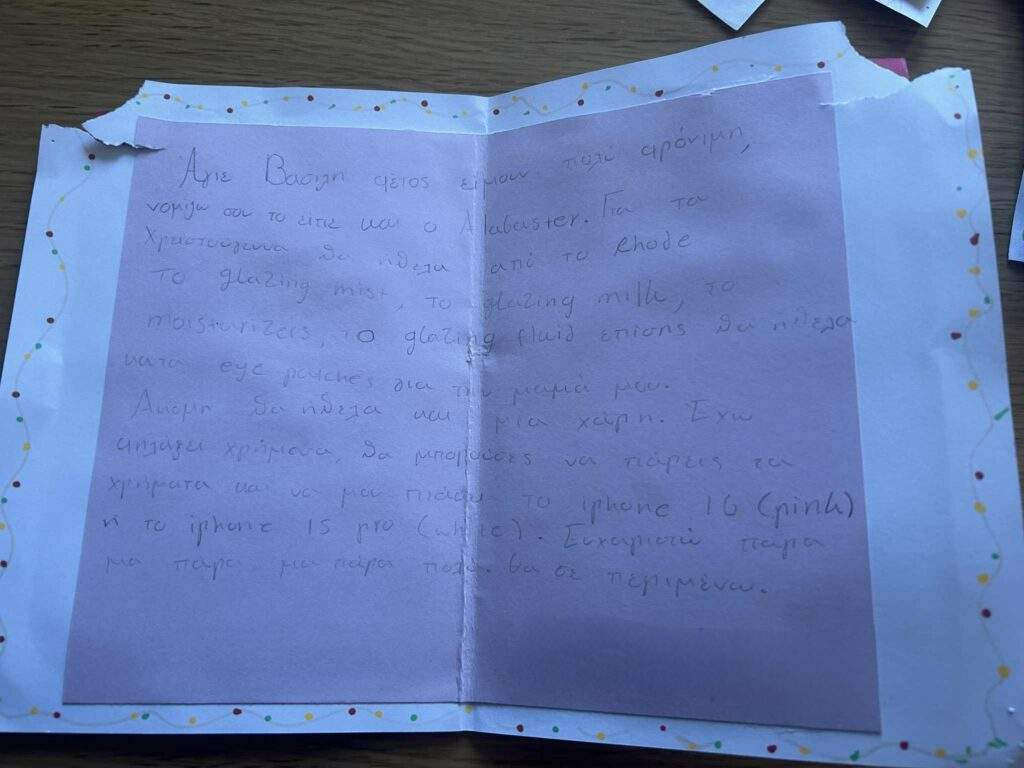 Άγιε Βασιλη φέτος είμουν πολύ φρόνιμη,
νομιζω σου το ειπε και ο Alabaster. Για τα
Χριστούγεννα θα ηθελα από το Rhode
το glazing mist, το glazing milk, το
moisturizers, το glazing fluid επισης θα ηθελα
κατα eye patches για την μαμά μου.
Ακομη θα ήθελα και μια χάρη. Εχω
χρήματα, θα μπορούσες να πάρεις τα
χρήματα και να μου το iphone 16 (pink)
η το iphone 15 pro (white). Ευχαριστώ παρα
μα πάρα μα πάρα πολυ. θα σε περιμένω.